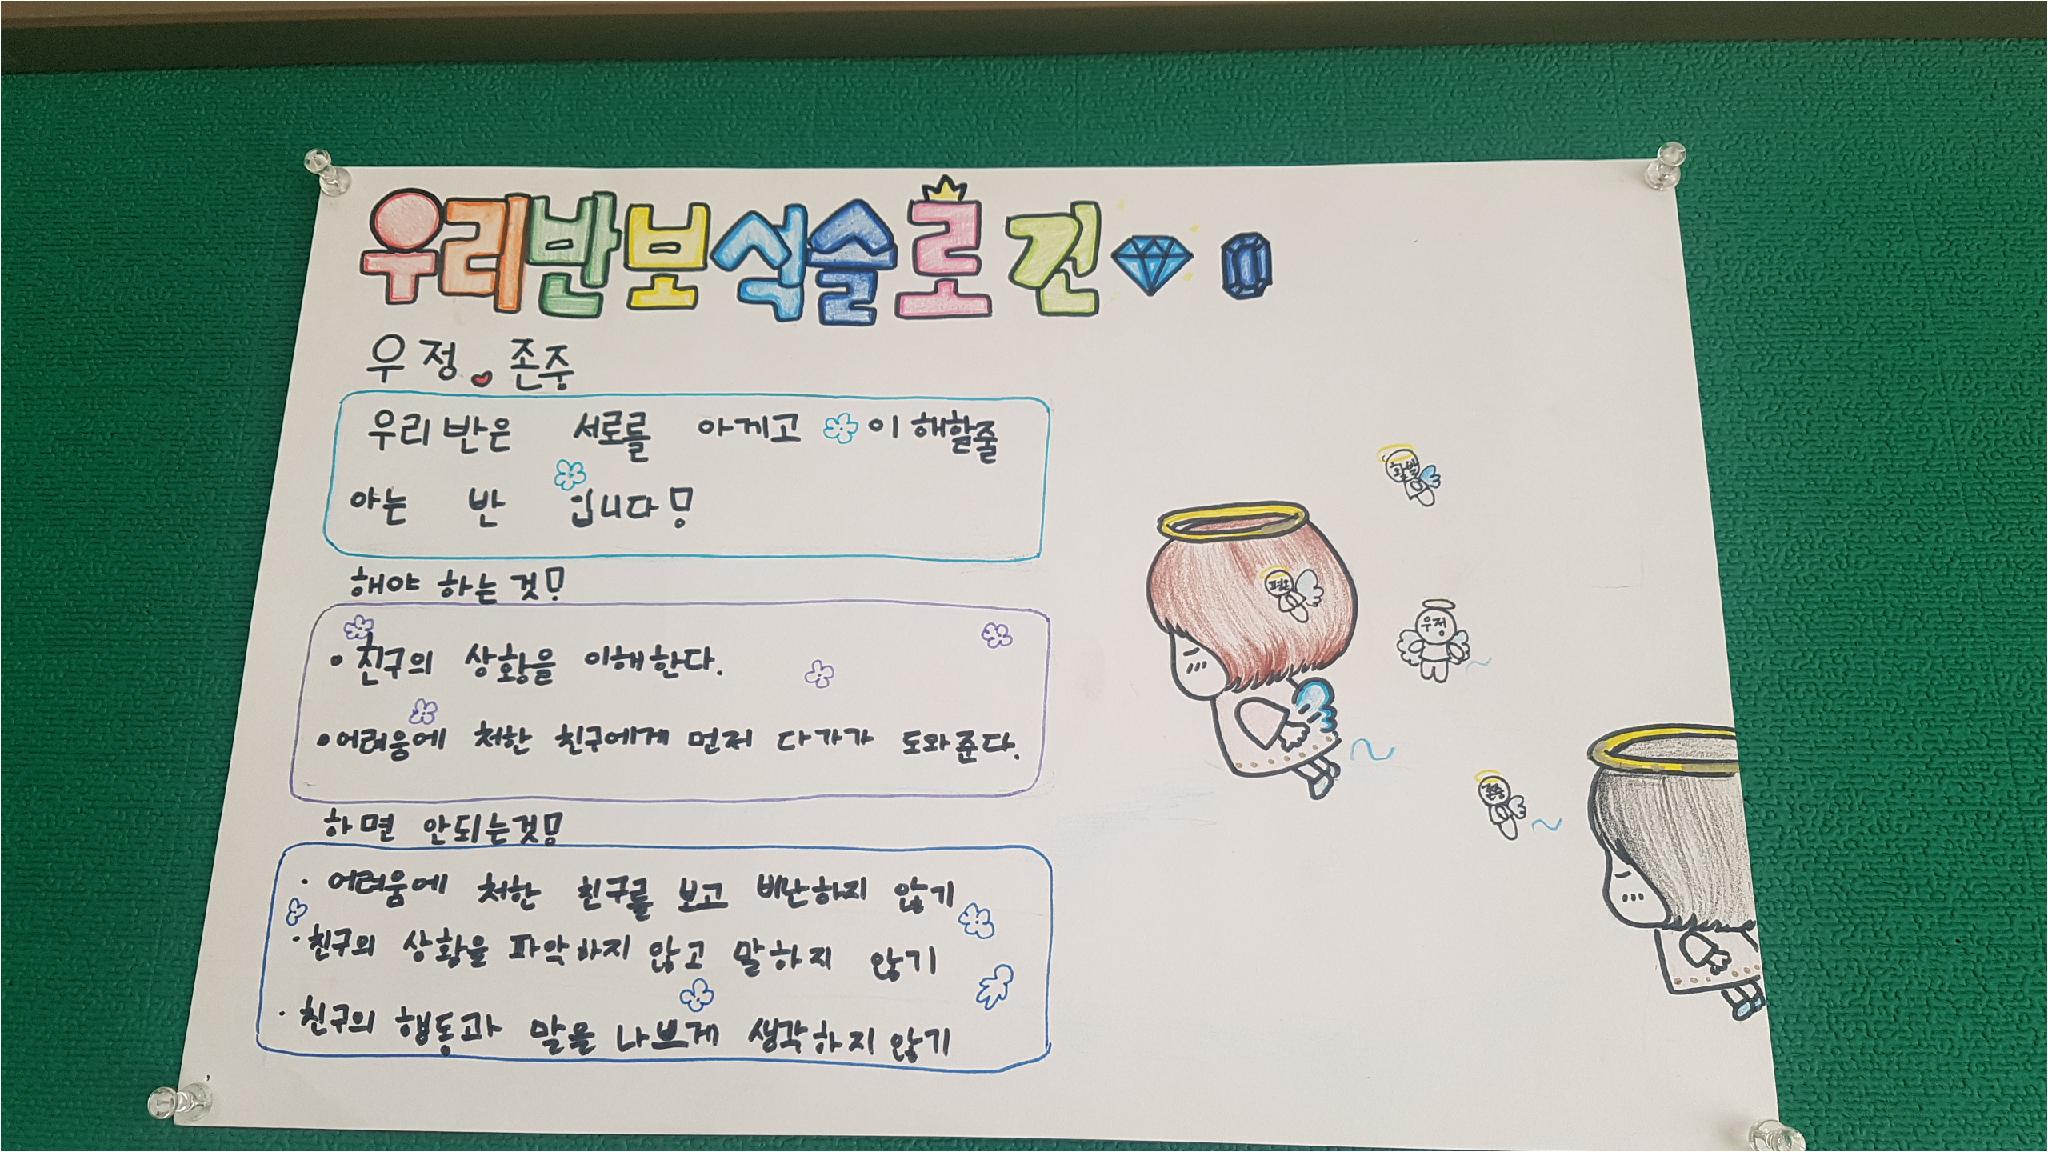 우리반보석슬로건
우정 존중
우리 반은 서로를 아게고 이해할줄
아는 반 입니다!
해야 하는 것!
• 친구의 상황을 이해한다.
• 어려움에 처한 친구에게 먼저 다가가 도와준다.
하면 안되는것!
· 어려움에 처한 친구를 보고 비난하지 않기
· 친구의 상황을 파악하지 않고 말하지 않기
· 친구의 행동과 말을 나쁘게 생각하지 않기
우정
존중